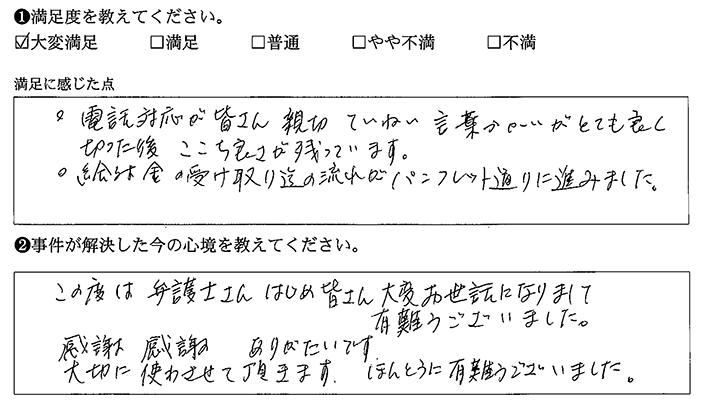 ❶満足度を教えてください。
☑大変満足 □満足 □普通 □やや不満 □不満
満足に感じた点
○ 電話対応が皆さん 親切 ていねい 言葉づかいがとても良く
切った後 ここち良さが残っています。
○ 給付金の受け取り迄の流れがパンフレット通りに進みました。
❷事件が解決した今の心境を教えてください。
この度は 弁護士さん はじめ 皆さん 大変お世話になりまして
有難うございました。
感謝 感謝 ありがたいです
大切に使わさせて頂きます。 ほんとうに有難うございました。